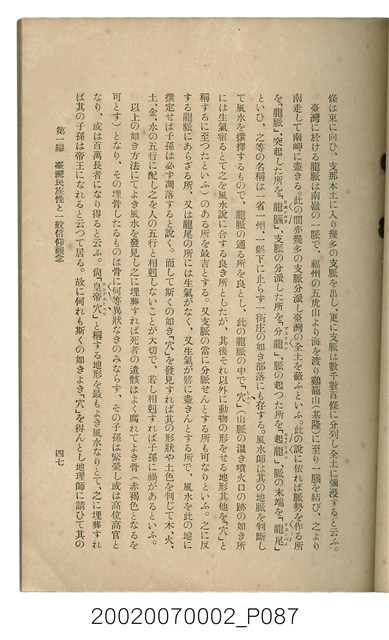 條は東に向ひ、支那本土に入り幾多の支脈を出し、更に支脈は數千數百條に分列し全土に彌漫すると云ふ。
臺灣に於ける龍脈は南嶺の一脈で、福州の五虎山より海を渡り鷄龍山(基隆)に至り一腦を結び、之より
南走して南岬に盡きる。此の間亦幾多の支脈分派し臺灣の全土を蔽ふといふ。此の說に依れば脈勢を作る所
を、「龍脈」、突起した所を、「龍腦」、支脈の分派した所を、「分龍」、脈の起つた所を、「起龍」、脈の末端を、「龍尾」
といひ、之等の名稱は一省一州、一縣下に止らず一街庄の如き部落にも存する。風水師は其の地脈を判斷し
て風水を撰擇するもので、龍脈の通る所を良とし、此の龍脈の中で、「穴」(山脈の溫き噴火口の跡の如き所
には生氣宿るとて之を風水說に合する良き所としたが、其後それ以外に動物の形をせる地形其他を、「穴」と
稱するに至つたといふ)のある所を最吉とする。又支脈の當に分脈せんとする所も可なりといふ。之に反
する龍脈にあらざる所、又は龍尾の所には生氣がなく、又生氣が將に盡きんとする所で、風水を此の地に
撰定せば子孫は必ず凋落すると說く。而して斯くの如き「穴」を發見すれば其の形狀や土色を判じて木、火、
土、金、水の五行に配し之を人の五行と相剋しないことが大切で、若し相剋すれば子孫に禍があるといふ。
以上の如き方法にてよき風水を發見し之に埋葬すれば死者の遺骸はよく腐れてよき骨(赤褐色となるを
可とす)となり、その埋骨したるものは骨に何等異狀なきのみならず、その子孫は繁榮し或は高位高官と
なり、或は百萬長者になり得ると云ふ。尙「皇帝穴」と稱する地形を最もよき風水なりとて、之に埋葬すれ
ば其の子孫は帝王になれると云つて居る。故に何れも斯くの如きよき「穴」を得んとし地理師に請ひて其の
第一編 臺灣民族性と一般信仰觀念
四七
20020070002_P087